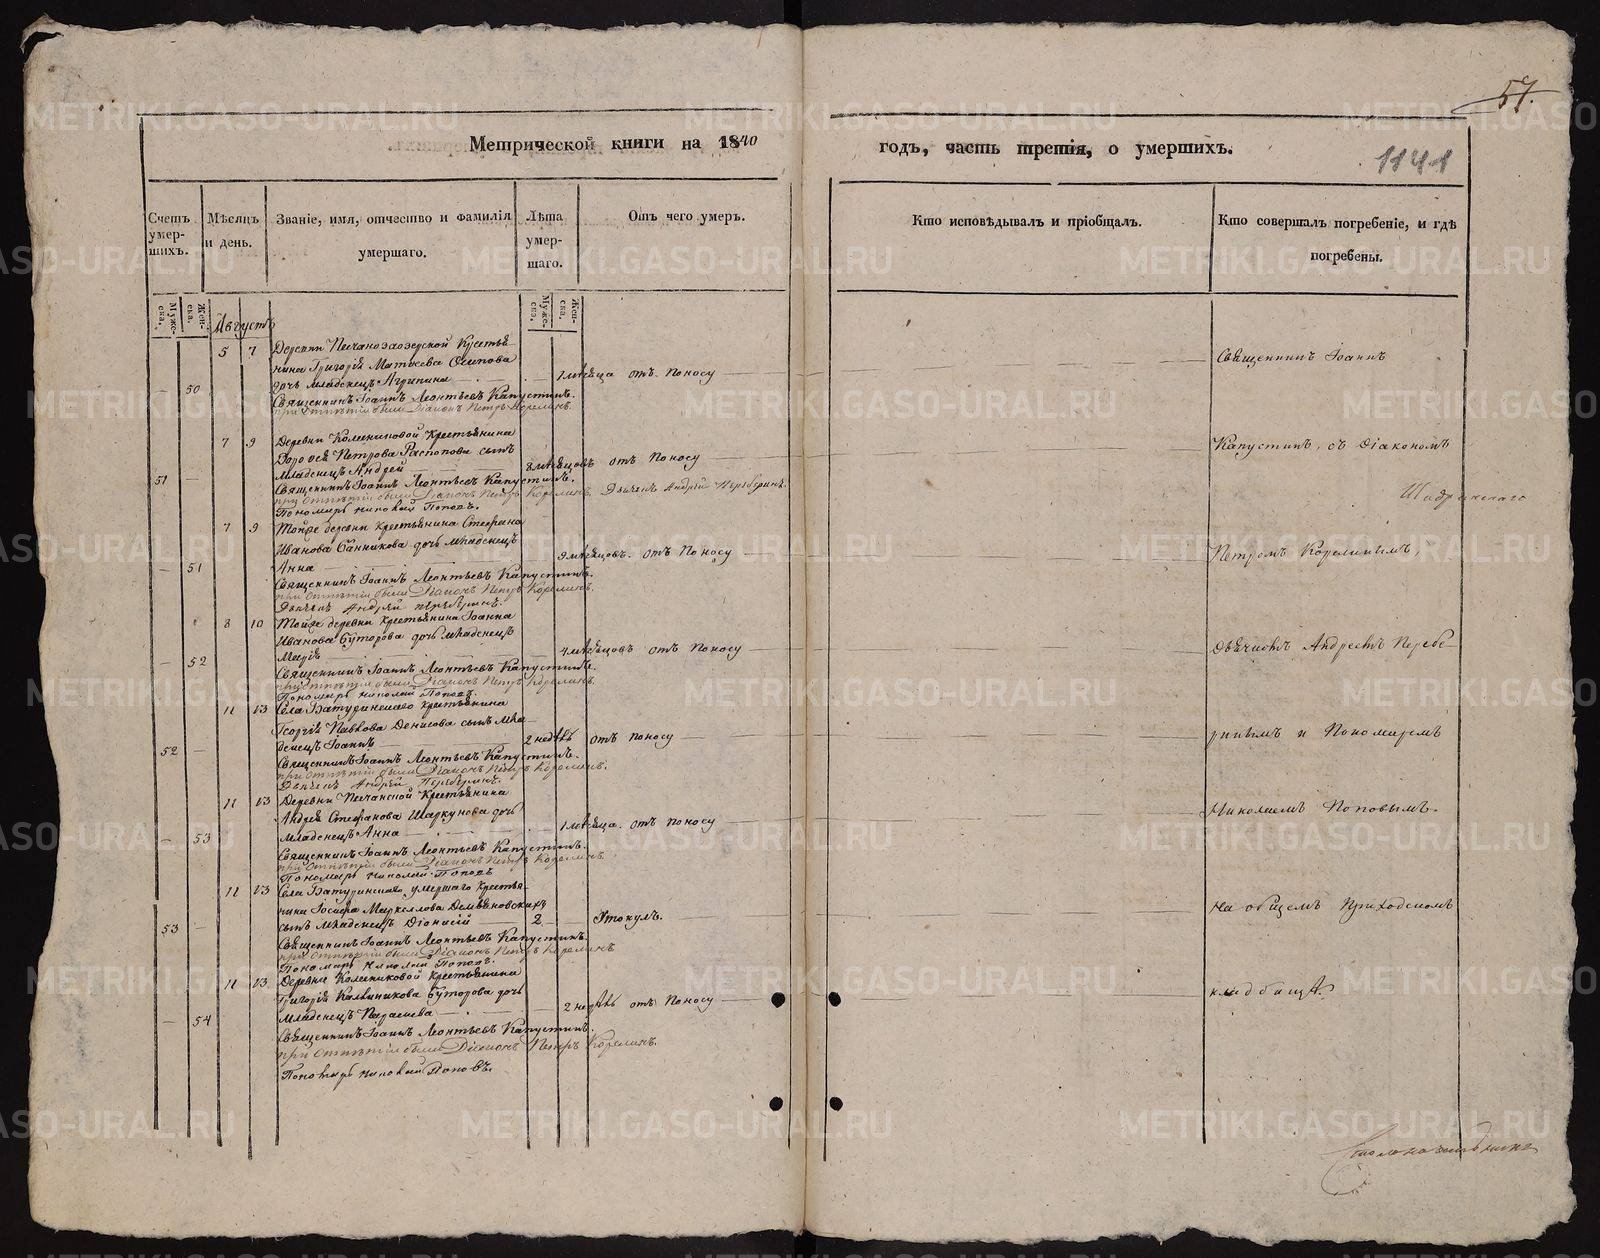 57.
1141
Метрической книги на 1840
годъ, часть третія, о умершихъ.
Счетъ умер-шихъ.
Мѣсяцъ и день.
Званіе, имя, отчество и фамилія умершаго.
Лѣта умер-шаго.
Отъ чего умеръ.
Кто исповѣдывалъ и пріобщалъ.
Кто совершалъ погребеніе, и гдѣ погребены.
Муже-ска.
Жен-ска.
Муже-ска.
Жен-ска.
Августъ
5 7 Деревни Песчаноозерской Крестья-
нина Григорія Матвеева Осипова
50 дочь младенецъ Агрипина 1 месяца отъ поносу
Священникъ Іоаннъ Леонтьевъ Капустинъ.
при отпѣтіи были Діаконъ Петръ Корелинъ.
7 9 Деревни Колесниковой Крестьянина
Дорофея Петрова Распопова сынъ
51 младенецъ Андрей 8 месяцовъ отъ поносу
Священникъ Іоаннъ Леонтьевъ Капустинъ.
при отпѣтіи были Діаконъ Петръ Корелинъ. Дьячекъ Андрей Переберинъ.
Пономарь Николай Поповъ.
7 9 Тойже деревни крестьянина Стефана
Иванова Банникова дочь младенецъ
51 Анна 9 месяцовъ. отъ поносу
Священникъ Іоаннъ Леонтьевъ Капустинъ.
при отпѣтіи были Діаконъ Петръ Корелинъ.
Дьячекъ Андрей Переберинъ.
8 10 Тойже деревни крестьянина Іоанна
Иванова Буторова дочь младенецъ
52 Марія 4 месяцовъ отъ поносу
Священникъ Іоаннъ Леонтьевъ Капустинъ.
при отпѣтіи были Діаконъ Петръ Корелинъ.
Пономарь Николай Поповъ.
11 13 Села Батуринскаго крестьянина
Георгія Павлова Денисова сынъ мла-
52 денецъ Іоаннъ 2 недѣль отъ поносу
Священникъ Іоаннъ Леонтьевъ Капустинъ.
при отпѣтіи были Діаконъ Петръ Корелинъ.
Дьячекъ Андрей Переберинъ.
11 13 Деревни Песчанской Крестьянина
Андрея Стефанова Шаркунова дочь
53 младенецъ Анна 1 месяца. отъ поносу
Священникъ Іоаннъ Леонтьевъ Капустинъ.
при отпѣтіи были Діаконъ Петръ Корелинъ.
Пономарь Николай Поповъ
11 13 Села Батуринскаго умершаго Крестья-
нина Іосифа Маркеллова Демьяновскихъ
53 сынъ младенецъ Діонисій 2 Утонулъ.
Священникъ Іоаннъ Леонтьевъ Капустинъ.
при отпѣтіи были Діаконъ Петръ Корелинъ
Пономарь Николай Поповъ.
11 13 Деревни Колесниковой крестьянина
Григорія Калинникова Буторова дочь
54 младенецъ Параскева 2 недѣль отъ поносу
Священникъ Іоаннъ Леонтьевъ Капустинъ.
при отпѣтіи были Діаконъ Петръ Корелинъ.
Пономарь Николай Поповъ.
Священникъ Іоаннъ
Капустинъ, съ діакономъ
Шадринскаго
Петромъ Корелинымъ,
дьячкомъ Андреемъ Перебе-
ринымъ и Пономаремъ
Николаемъ Поповымъ.
на общемъ приходскомъ
кладбищѣ.
Столоначальникъ
METRIKI.GASO-URAL.RU